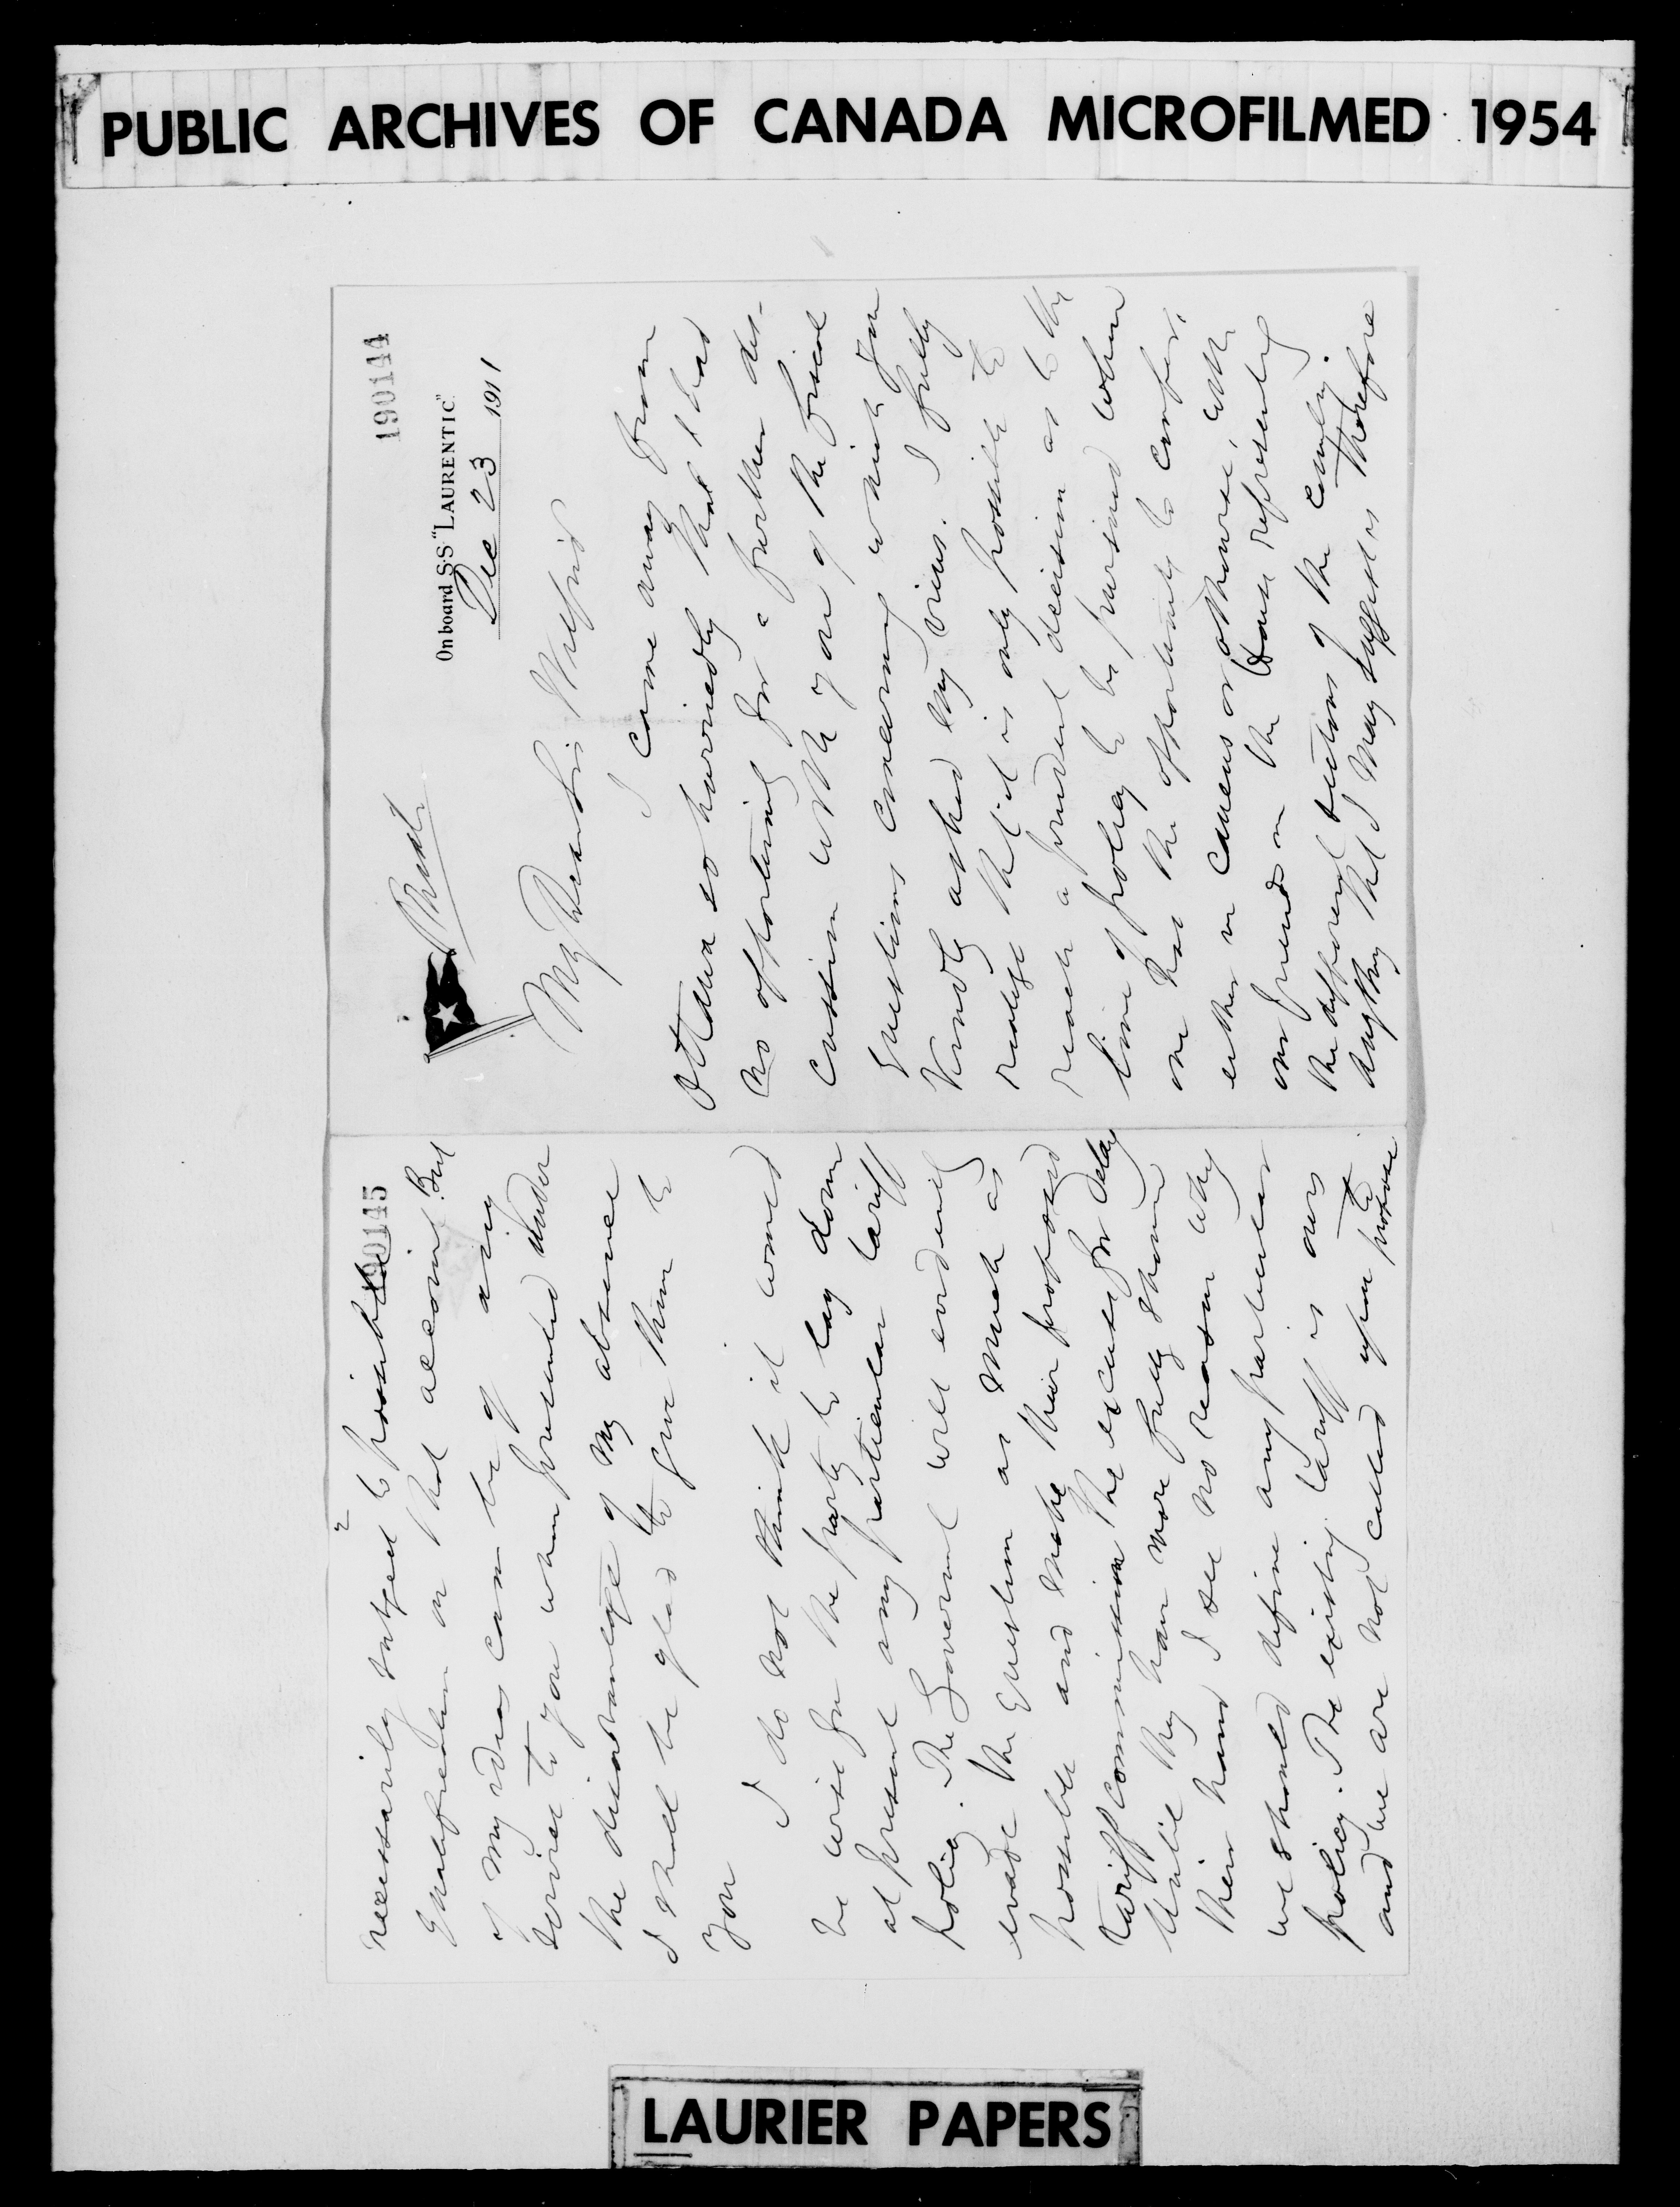 PUBLIC ARCHIVES OF CANADA MICROFILMED 1954
190144
On board S·S "LAURENTIC"
Dec 23 1911
My Dear Sir Wilfrid
I came away from
Ottawa so hurriedly that I had
no opportunity for a further dis-
cussion with you of the fiscal
questions concerning which you
kindly asked my views. I fully
realize that it is only possible to
reach a prudent decision as to the
line of policy to be pursued when
one has the opportunity to confer,
either in caucus or otherwise, with
our friends in the House representing
the different sections of the country.
Anything that I may suggest is therefore
190145
2
necessarily subject to possible
qualification on that account. But
if my ideas can be of any
service to you when presented under
the disadvantage of my absence
I shall be glad to give them to
you
I do not think it would
be wise for the party to lay down
at present any particular tariff
policy. The Government will evidently
evade the question as much as
possible and make their proposed
tariff commission the excuse for delay
Until they have more fully shown
their hand I see no reason why
we should define any particular
policy. The existing tariff is ours
and we are not called upon to propose
LAURIER PAPERS